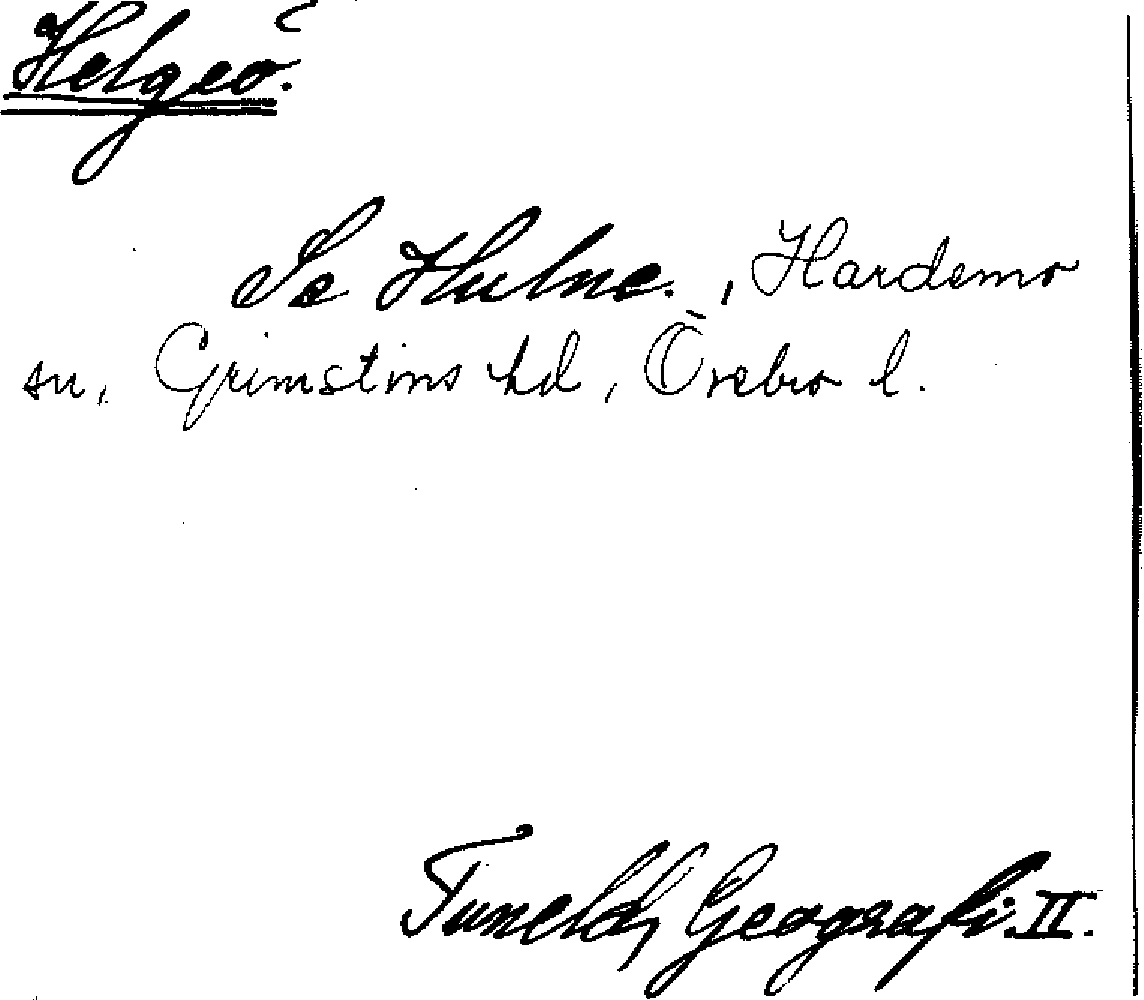 Helgeö.
Se Hulne. , Hardemo
sn, Grimstens hd, Örebro l.
Tunelds Geografi. II.